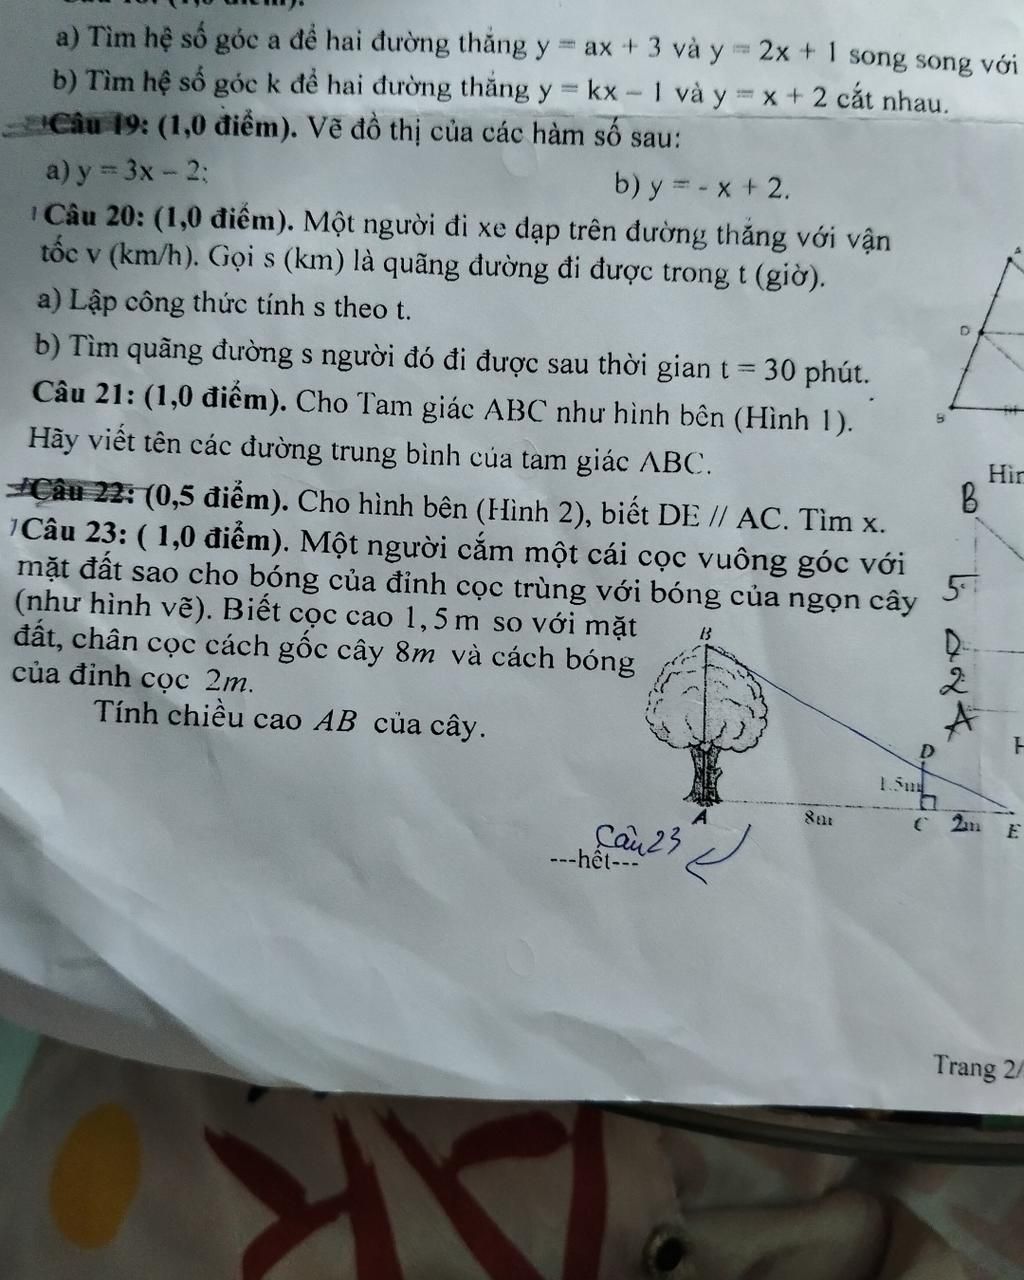 a) Tìm hệ số góc a để hai đường thẳng y = ax + 3 và y = 2x + 1 song song với
b) Tìm hệ số góc k để hai đường thẳng y = kx – 1 và y = x + 2 cắt nhau.
Câu 19: (1,0 điểm). Vẽ đồ thị của các hàm số sau:
a) y = 3x – 2;
b) y = - x + 2.
Câu 20: (1,0 điểm). Một người đi xe đạp trên đường thẳng với vận
tốc v (km/h). Gọi s (km) là quãng đường đi được trong t (giờ).
a) Lập công thức tính s theo t.
b) Tìm quãng đường s người đó đi được sau thời gian t = 30 phút.
Câu 21: (1,0 điểm). Cho Tam giác ABC như hình bên (Hình 1).
Hãy viết tên các đường trung bình của tam giác ABC.
Câu 22: (0,5 điểm). Cho hình bên (Hình 2), biết DE // AC. Tìm x.
Câu 23: ( 1,0 điểm). Một người cắm một cái cọc vuông góc với
mặt đất sao cho bóng của đỉnh cọc trùng với bóng của ngọn cây
(như hình vẽ). Biết cọc cao 1,5m so với mặt
đất, chân cọc cách gốc cây 8m và cách bóng
của đỉnh cọc 2m.
Tính chiều cao AB của cây.
A
D
B
B
5
D
2
A
B
D
1.5m
A
8m
C
2m
E
Câu 23
---hết---
Trang 2/